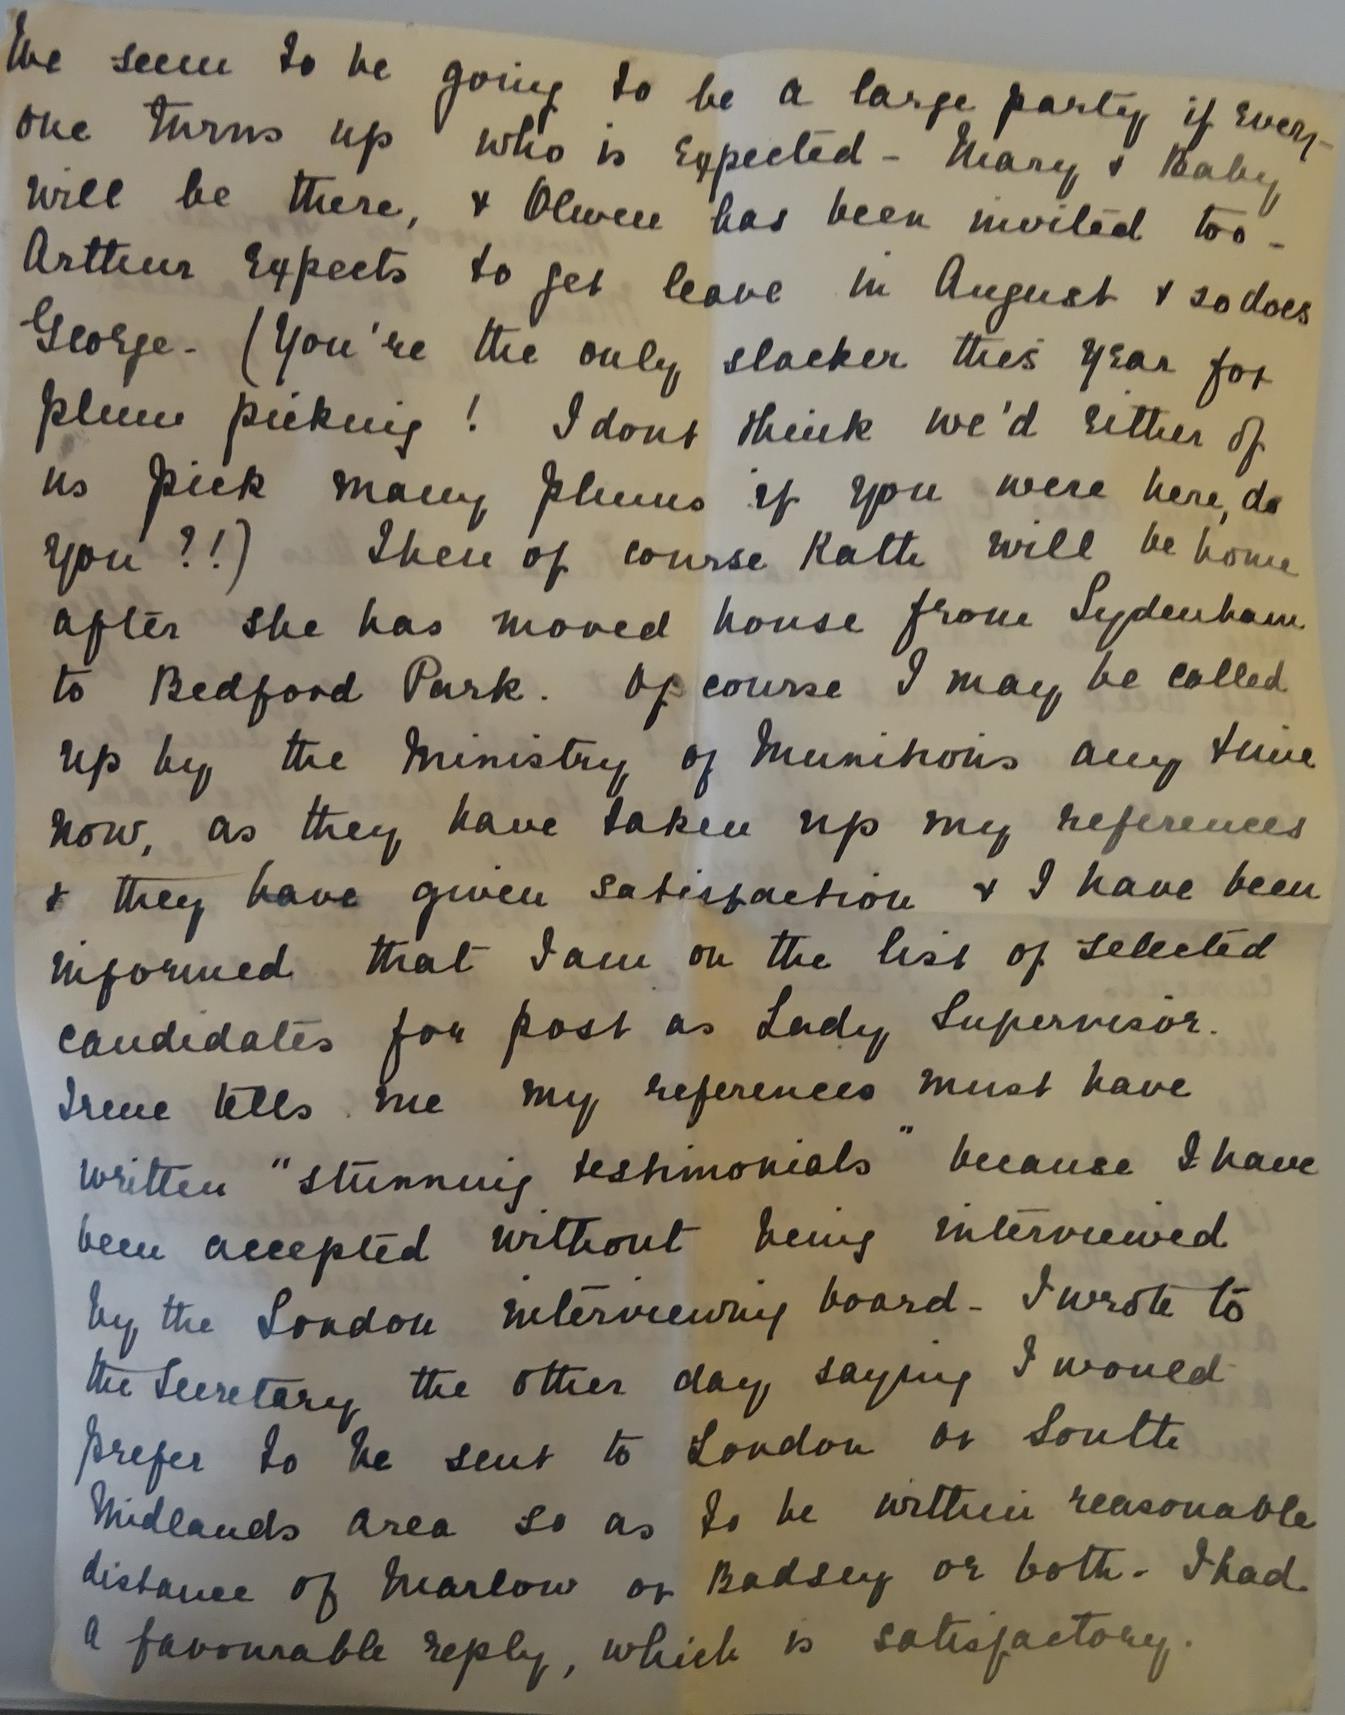 We seem to be going to be a large party if every-
one turns up who is expected - Mary & Baby
will be there, & Olwen has been invited too -
Arthur expects to get leave in August & so does
George - (You're the only slacker this year for
plum picking! I dont think we'd either of
us pick many plums if you were here, do
you?!) Then of course Kath will be home
after she has moved house from Sydenham
to Bedford Park. Of course I may be called
up by the Ministry of Munitions any time
now, as they have taken up my references
& they have given satisfaction & I have been
informed that I am on the list of selected
candidates for post as Lady Supervisor.
Irene tells me my references must have
written "stunning testimonials" because I have
been accepted without being interviewed
by the London interviewing board - I wrote to
the Secretary the other day saying I would
prefer to be sent to London or South
Midlands area so as to be within reasonable
distance of Marlow or Badsey or both - I had
a favourable reply, which is satisfactory.